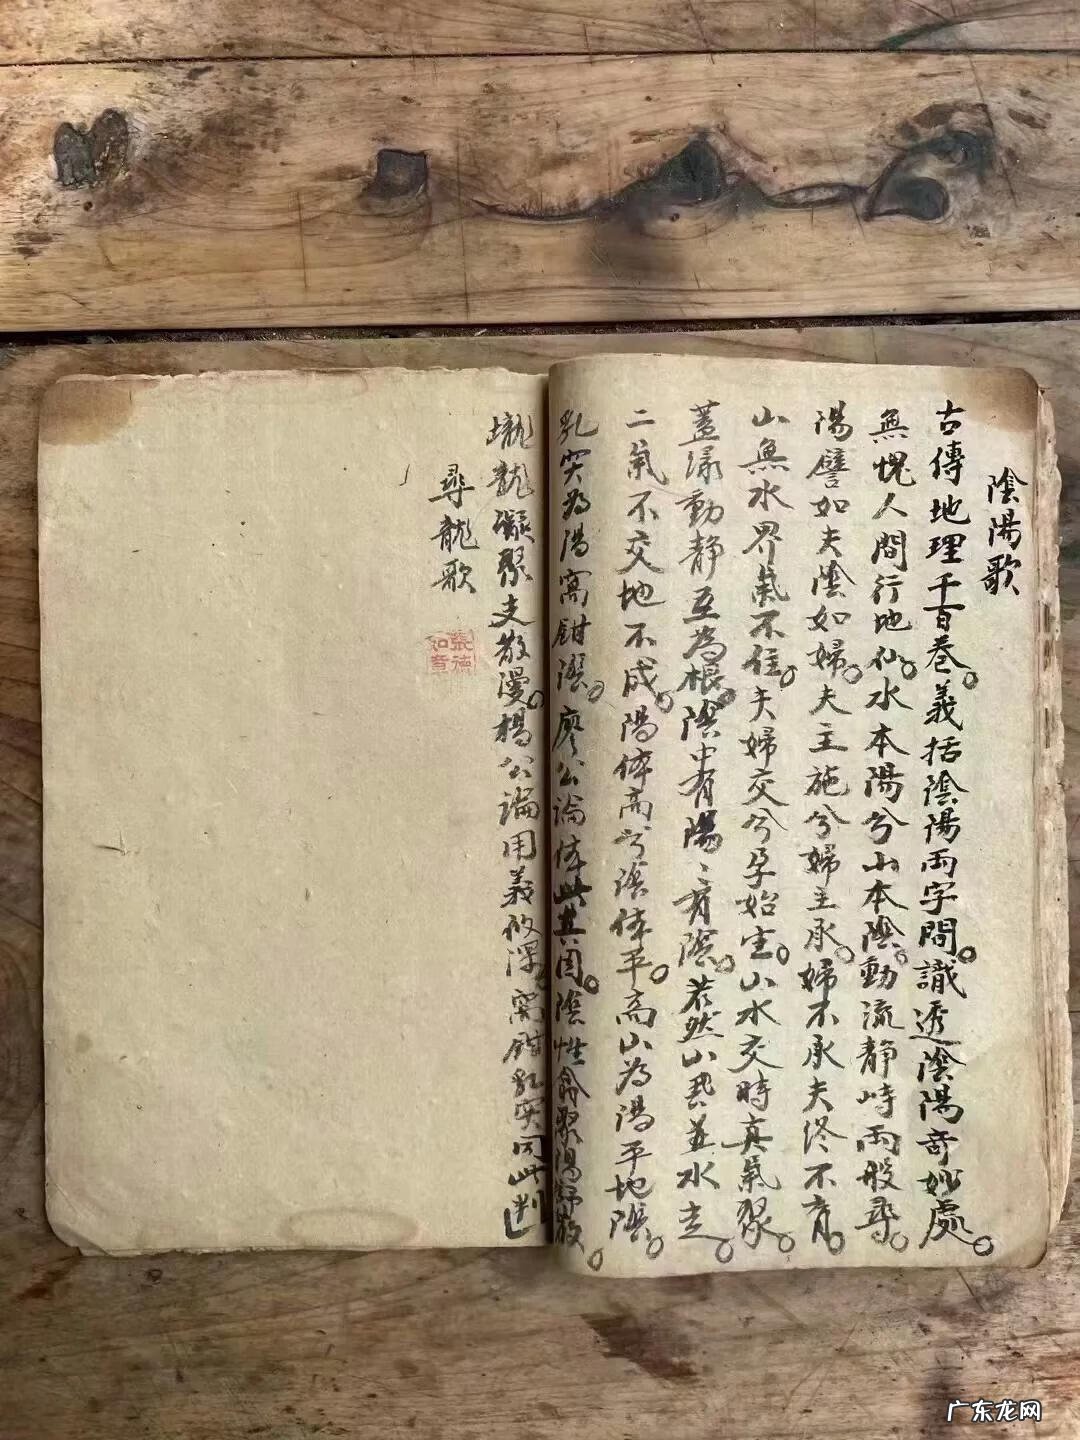 陰陽歌
古傳地理千百卷義括陰陽兩字間識透陰陽奇妙處
無愧人間行地仙水本陽兮山本陰動流靜峙兩般尋
陽譬如夫陰如婦夫主施兮婦主承婦不承夫終不育
山無水界氣不住夫婦交兮孕始生山水交時真氣聚
蓋緣動靜互為根陰中有陽〻有陰若然山
並水走
二氣不交地不成陽体高兮陰体平高山為陽平地陰
乳突為陽窩鉗陰廖公論体此其因陰性翕聚陽舒散
壠龍凝聚支散漫楊公論用義攸深窩鉗乳突同此判
尋龍歌
張德
如章
广东龙网